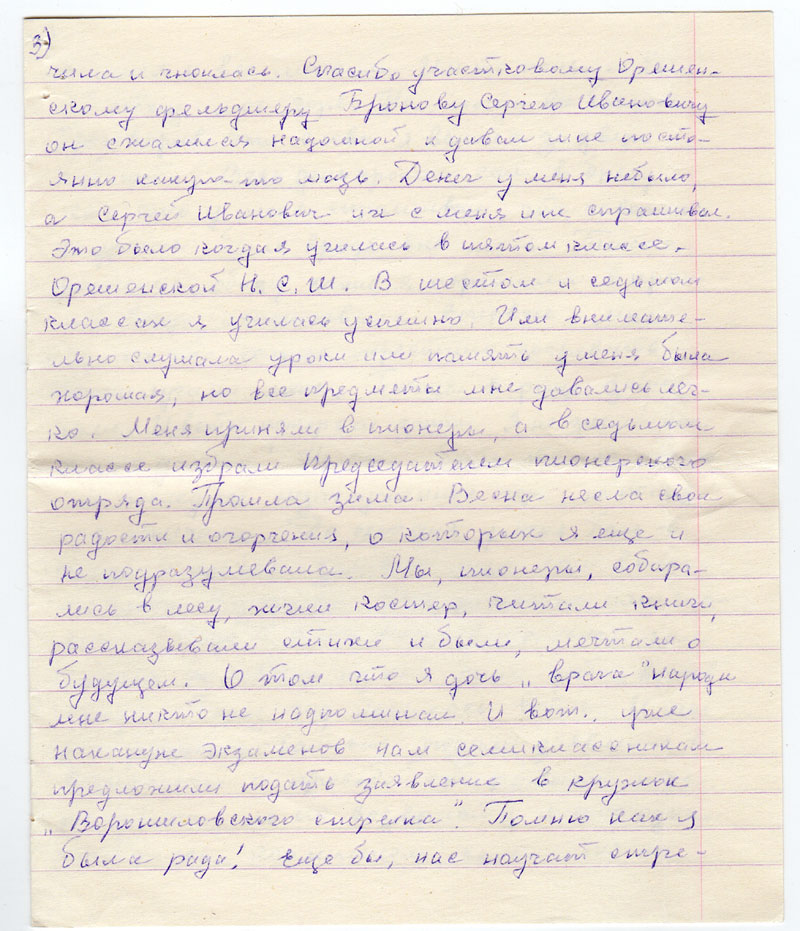 3)
чила и гноилась. Спасибо участковому Орешен-
скому фельдшеру Бронову Сергею Ивановичу
он сжалился надомной и давал мне посто-
янно какую-то мазь. Денег у меня небыло,
а Сергей Иванович их с меня и не спрашивал.
Это было когда я училась в пятом классе.
Орешенской Н. С. Ш. В шестом и седьмом
классах я училась успешно. Или внимате-
льно слушала уроки или память у меня была
хорошая, но все предметы мне давались лег-
ко. Меня приняли в пионеры, а в седьмом
классе избрали председателем пионерского
отряда. Прошла зима. Весна несла свои
радости и огорчения, о которых я еще и
не подразумевала. Мы, пионеры, собира-
лись в лесу, жгли костер, читали книги,
рассказывали стихи и были, мечтали о
будущем. О том что я дочь „врага" народа
мне никто не надпоминал. И вот.. уже
накануне экзаменов нам семиклассникам
предложили подать заявление в кружок
„Ворошиловского стрелка". Помню как я
была рада! Еще бы, нас научат стре-